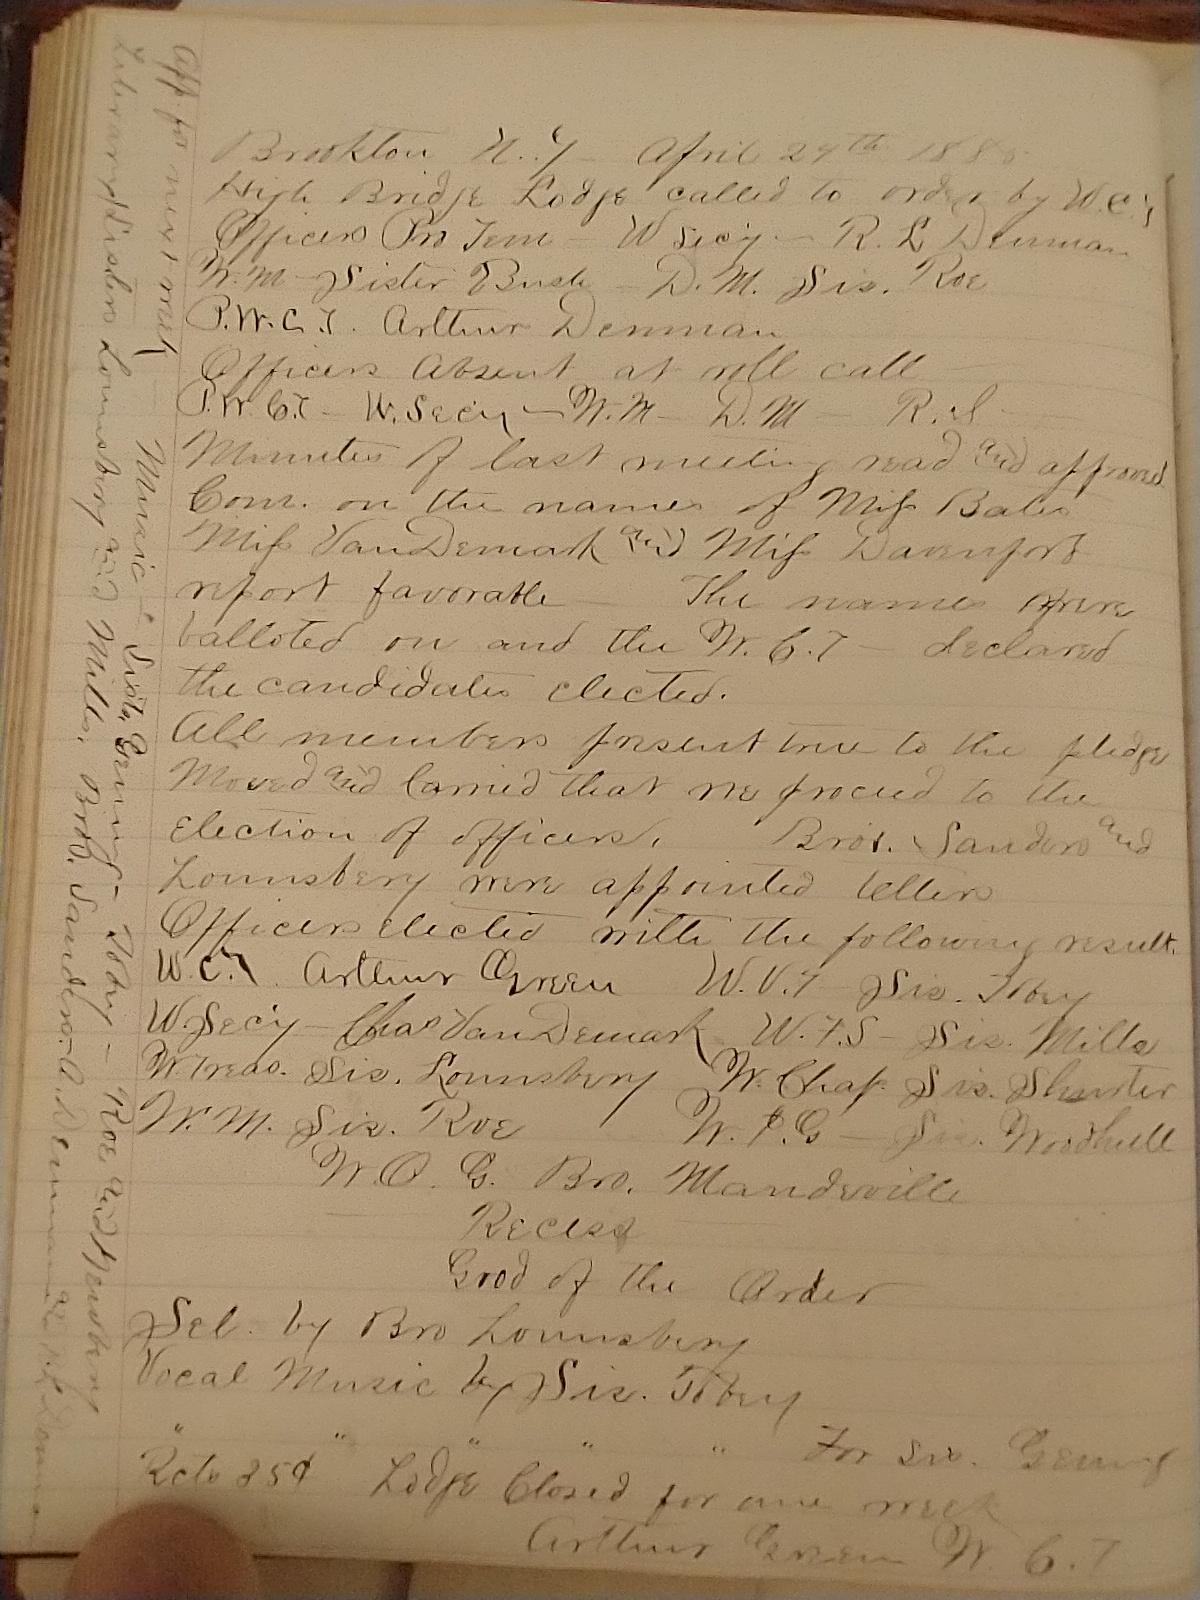 Brookton N.Y. April 24th 188
High Bridge Lodge called to order by W.C.T
Officers Pro Tem - W Secy - R. L Denman
W.M - Sister Bush - D.M. Sis. Roe
P.W.C.T. Arthur Denman
Officers Absent at roll call
P.W.C.T - W.Secy - W.M - D.M - R.S
Minutes of last meeting read and approved
Com. on the names of Miss Bates
Miss VanDemark and Miss Davenport
report favorable - The names were
balloted on and the W.C.T - declared
the candidates elected.
All members present true to the pledge
Moved and Carried that we proceed to the
Election of officers. Bros. Sanders and
Lounsbery were appointed tellers
Officers elected with the following result.
W.C.T. Arthur Green W.V.T - Sis. Tobey
W.Secy - Chas VanDemark W.F.S - Sis. Mills
W.Treas. Sis. Lounsbery W.Chap. Sis. Shurter
W.M. Sis. Roe W.I.G - Sis. Woodhull
W.O.G. Bro. Mandeville
Recess
Good of the Order
Sel. by Bro Lounsbery
Vocal Music by Sis. Tobey
" " " " " For Sis. Genung
Rcts 35¢ Lodge Closed for one week
Arthur Green W.C.T
App for next week
Music - Sists. Genung - Tobey - Roe and
Literary Sisters Lounsbery and Mills. Bros. Sanders. A. Denman and R L Denman